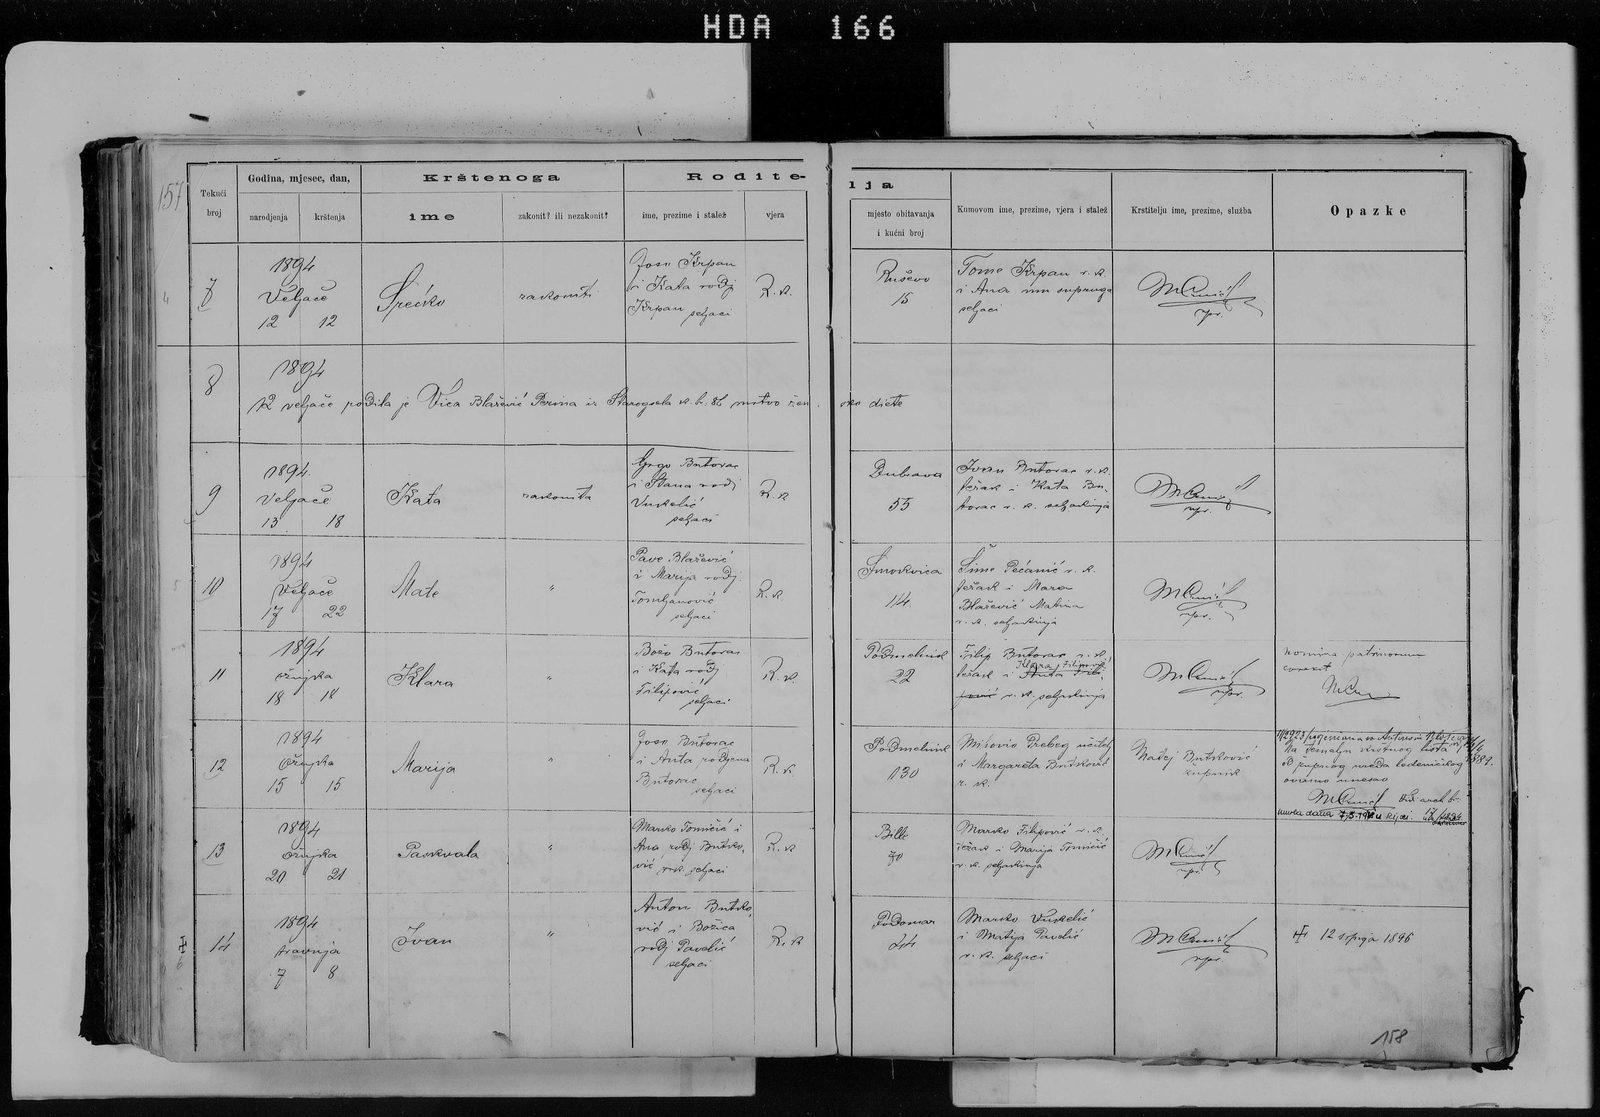 HDA 166
157
Tekući broj
Godina, mjesec, dan,
narodjenja
krštenja
Krštenoga
ime
zakonit? ili nezakonit?
Rodite-
ime, prezime i stalež
vjera
lja
mjesto obitavanja
i kućni broj
Kumovom ime, prezime, vjera i stalež
Krstitelju ime, prezime, služba
Opazke
7
1894
Veljače
12 12
Srećko
zakonit
Joso Krpan
i Kata rodj
Krpan
seljaci
R. k.
Ruševo
15
Tome Krpan r. k.
i Ana mu supruga
seljaci
8
1894
12 veljače rodila je Vica Blažević Perina iz Staroga sela k. b. mrtvo žen
sko diete
9
1894
Veljače
13 18
Kata
zakonita
Grgo Butorac
i Stana rodj
Vukelić
seljaci
R. k
Dubrava
55
Ivan Butorac r. k.
težak i Kata Bu-
torac r. k. seljakinja
10
1894
Veljače
17 22
Mate
"
Pave Blažević
i Marija rodj
Tomljanović
seljaci
R. k.
Smokvica
114
Šime Pećanić r. k.
težak i Mara
Blažević Matina
r. k. seljakinja
11
1894
ožujka
18 18
Klara
"
Božo Butorac
i Kata rodj
Filipović
seljaci
R. k.
Podmelnik
22
Filip Butorac r. k.
Klara Filipović
težak i Anta Fili-
pović r. k. seljakinja
12
1894
Ožujka
15 15
Marija
"
Joso Butorac
i Anta rodjena
Butorac
seljaci
R. k.
Podmelnik
130
Prebeg učitelj
i Margareta Butković
r. k.
Matej Butković
župnik
Na temelju krstnog lista
od župnog ureda ledeničkog
ovamo unesao
umrla dana
13
1894
Ožujka
20 21
Paskvala
"
Marko Tomičić i
Ana rodj Butko-
vić r.k. seljaci
R. k
Bilo
Marko Filipović r. k.
težak i Marija Tomičić
r. k. seljakinja
14
1894
travnja
7 8
Ivan
"
Anton Butko-
vić i Božica
rodj Pavelić
seljaci
R. k
Podomar
44
Marko Vukelić
i Matija Pavelić
r. k. seljaci
12 srpnja 1896
158